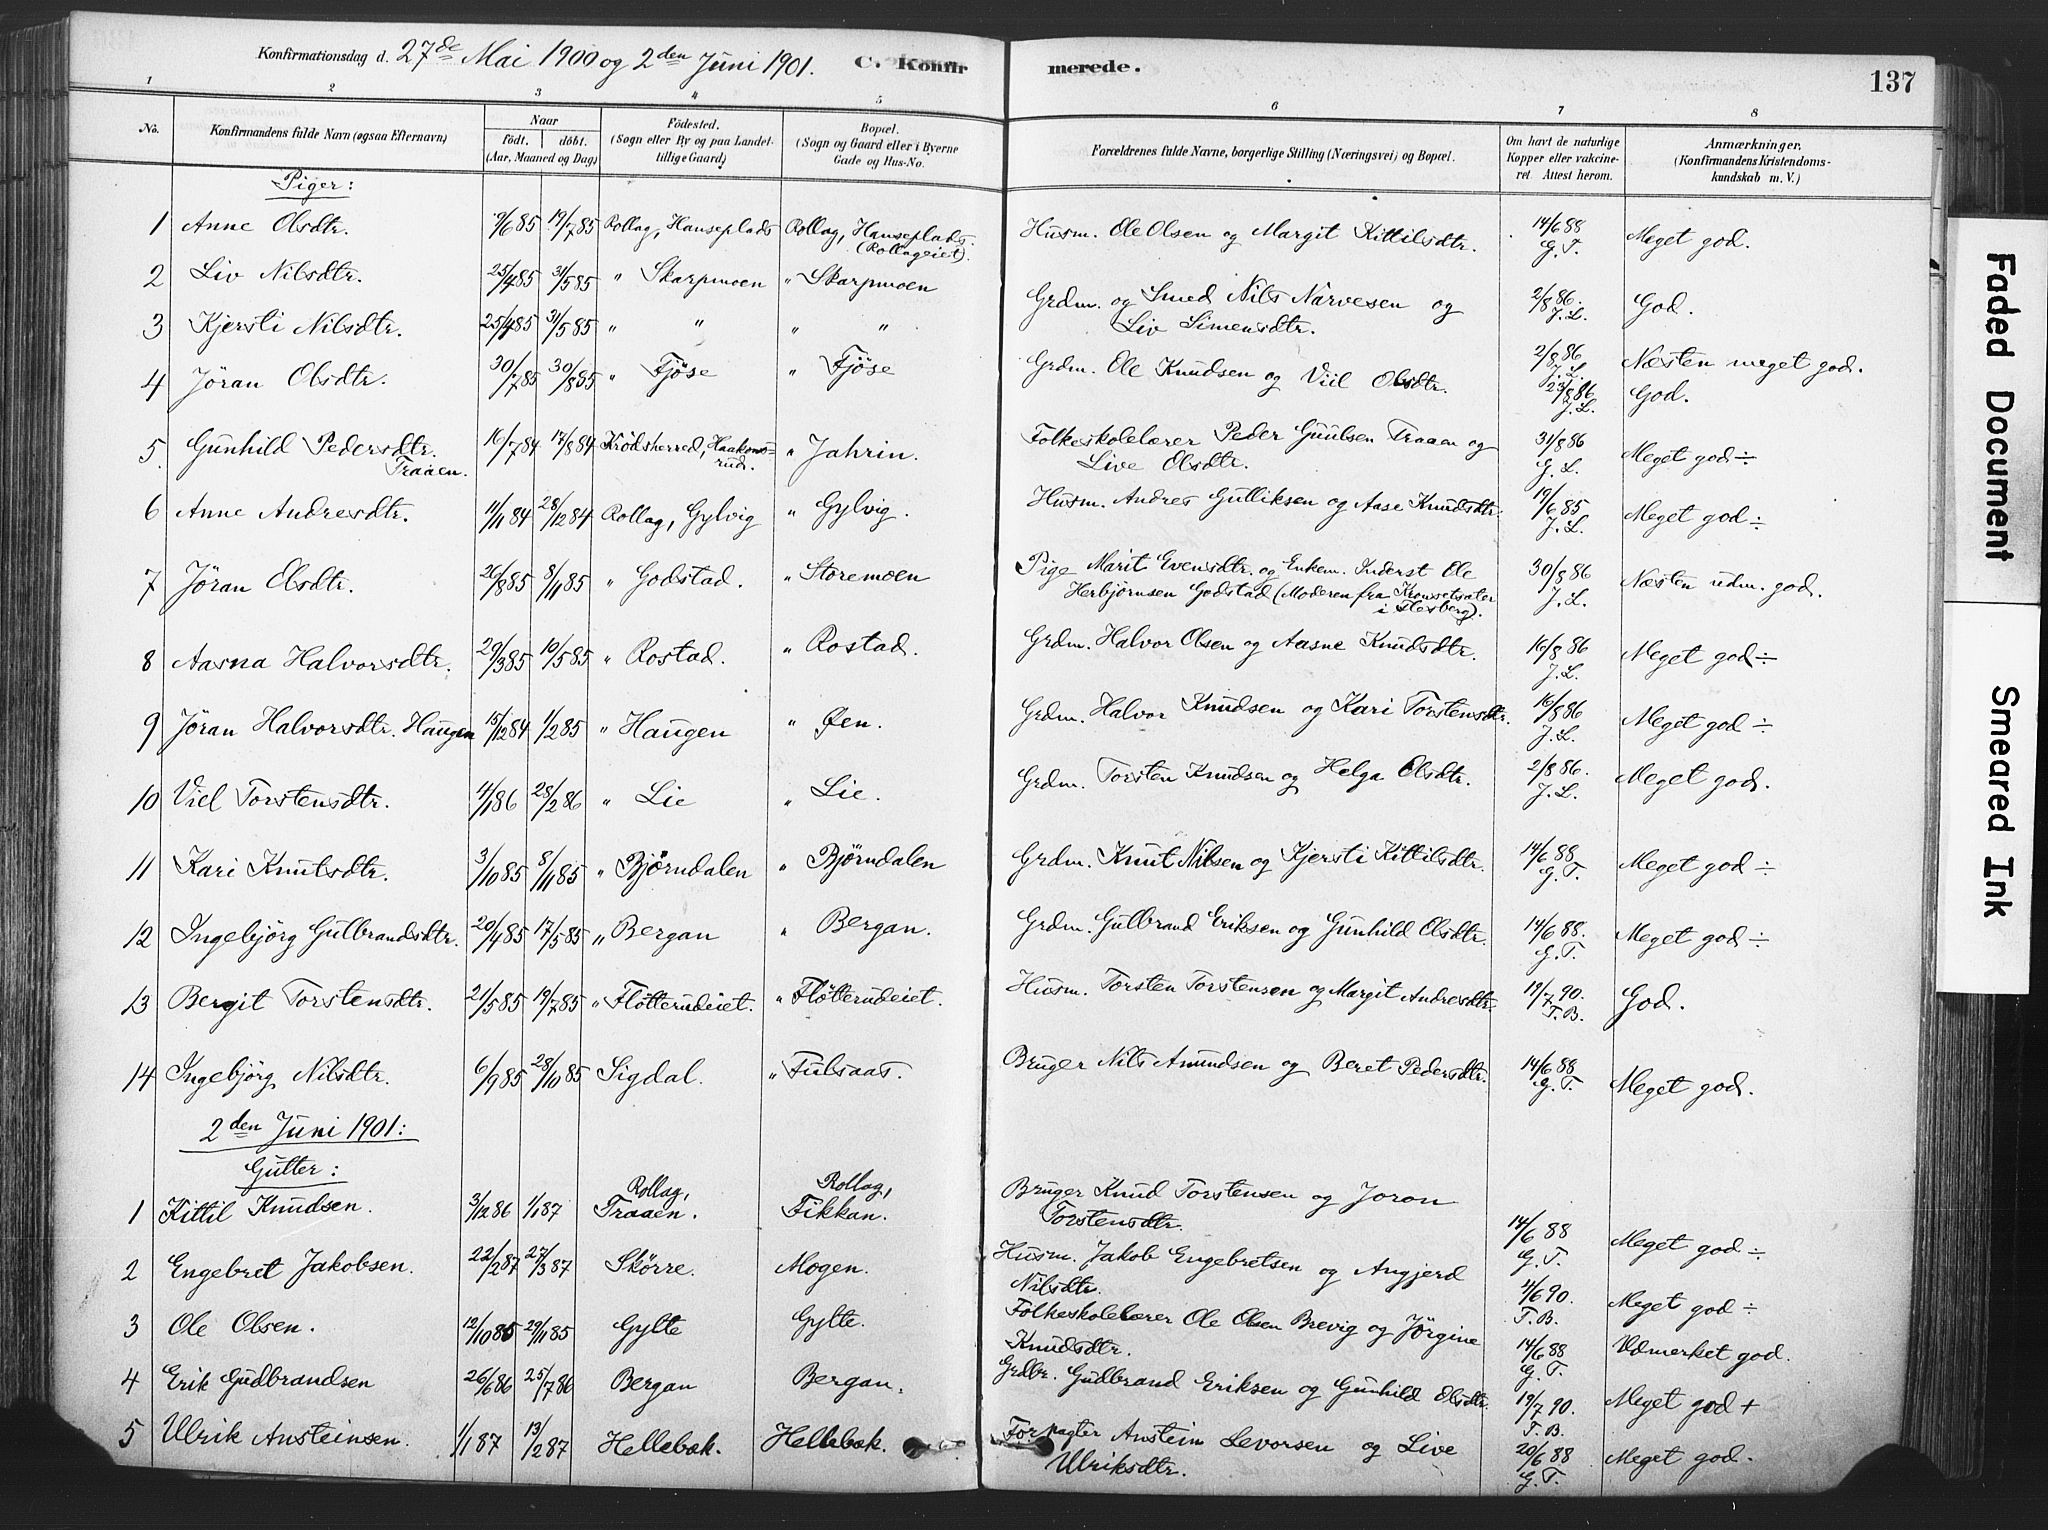 Konfirmationsdag d. 27de Mai 1900 og 2den Juni 1901. C. Konfirmerede. 137
1 2 3 4 5 6 7 8
No. Konfirmandens fulde Navn (ogsaa Efternavn)
Naar født. døbt. (Aar, Maaned og Dag)
Fødested. (Sogn eller By og paa Landet tillige Gaard)
Bopæl. (Sogn og Gaard eller i Byerne Gade og Hus-No.
Forældrenes fulde Navne, borgerlige Stilling (Næringsvei) og Bopæl.
Om havt de naturlige Kopper eller vaccineret. Attest herom.
Anmærkninger. (Konfirmandens Kristendomskundskab m. V.)
Piger:
1 Anne Olsdtr. 9/6 85 19/7 85 Rollag, Hanseplads Rollag, Hanseplads. (Rollageiet). Husm. Ole Olsen og Margit Kittilsdtr. 14/6 88 G. T. Meget god.
2 Liv Nilsdtr. 25/4 85 31/5 85 " Skarpmoen " Skarpmoen Grdm. og Smed Nils Narvesen og 2/8 86. J. L. God.
3 Kjersti Nilsdtr. 25/4 85 31/5 85 " " " " Liv Simensdtr. 2/8 86 J. L. Næsten meget god.
4 Jöran Olsdtr. 30/7 85 30/8 85 " Fjöse " Fjöse Grdm. Ole Knudsen og Viil Olsdtr. 23/8 86 J. L. God.
5 Gunhild Pedersdtr. Traaen. 16/7 84 17/8 84 Krödsherred, Haakonsrud. " Jahrin. Folkeskolelærer Peder Guulsen Traaen og Live Olsdtr. 31/8 86 G. L. Meget god ÷
6 Anne Andresdtr. 11/11 84 28/12 84 Rollag, Gylvig " Gylvig. Husm. Andres Gulliksen og Aase Knudsdtr. 19/6 85 J. L. Meget god ÷
7 Jöran Olsdtr. 26/8 85 8/11 85 " Godstad. " Storemoen Pige Marit Evensdtr. og Enkem. Inderst Ole Herbjörnsen Godstad (Moderen fra Krowsetsæter i Flesberg). 30/8 86 J. L. Næsten udm. god.
8 Aasna Halvorsdtr. 29/3 85 10/5 85 " Rostad. " Rostad. Grdm. Halvor Olsen og Aasne Knudsdtr. 16/8 86 J. L. Meget god ÷
9 Jöran Halvorsdtr. Haugen 15/12 84 1/2 85 " Haugen " Øen. Grdm. Halvor Knudsen og Kari Torstensdtr. 16/8 86 J. L. Meget god ÷
10 Viel Torstensdtr. 4/1 86 28/2 86 " Lie " Lie. Grdm. Torsten Knudsen og Helga Olsdtr. 2/8 86. J. L. Meget god.
11 Kari Knutsdtr. 3/10 85 8/11 85 " Björndalen " Björndalen Grdm. Knut Nilsen og Kjersti Kittilsdtr. 14/6 88 G. T. Meget god ÷
12 Ingebjörg Gulbrandsdtr. 20/4 85 17/5 85 " Bergan " Bergan. Grdm. Gulbrand Eriksen og Gunhild Olsdtr. 14/6 88. G. T. Meget god ÷
13 Bergit Torstensdtr. 21/5 85 19/7 85 " Flötterudeiet. " Flötterudeiet. Husm. Torsten Torstensen og Margit Andresdtr. 19/7 90. T. B. God.
14 Ingebjörg Nilsdtr. 6/9 85 28/10 85 Sigdal. " Fulsaas. Bruger Nils Amundsen og Beret Pedersdtr. 14/6 88 G. T. Meget god.
2den Juni 1901:
Gutter:
1 Kittil Knudsen. 3/12 86 1/1 87 Rollag, Traaen. Rollag, Fikkan. Bruger Knud Torstensen og Joran Torstensdtr. 14/6 88 G. T. Meget god ÷
2 Engebret Jakobsen. 22/2 87 27/3 87 Skörre. Mogen. Husm. Jakob Engebretsen og Angjerd Nilsdtr. 4/6 90. T. B. Meget god ÷
3 Ole Olsen. 12/10 85 29/11 85 Gylte Gylte. Folkeskolelærer Ole Olsen Brevig og Jörgine Knudsdtr. 14/6 88 G. T. Udmerket god.
4 Erik Gudbrandsen 26/6 86 25/7 86 Bergan Bergan. Grdbr. Gudbrand Eriksen og Gunhild Olsdtr. 19/7 90. T. B. Meget god +
5 Ulrik Austeinsen. 1/1 87 13/2 87 Hellebæk. Hellebæk. Forpagter Anstein Levorsen og Live Ulriksdtr. 20/6 88 G. T. Meget god.
Faded Document
Smeared Ink